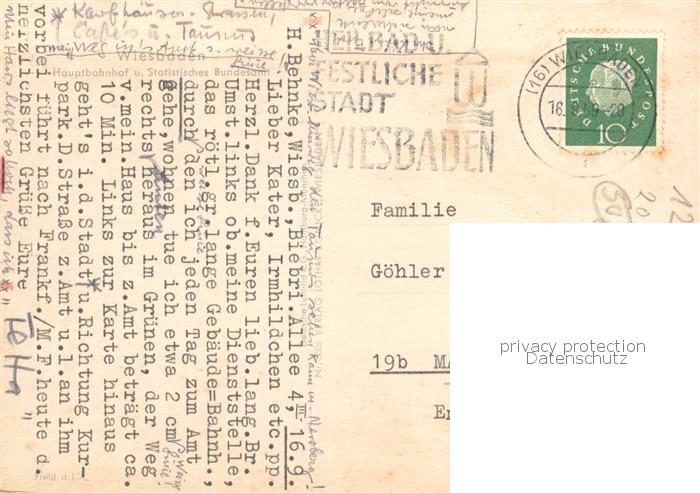 * Kaufhäuser, Strassen,
Cafés u. Taunus
Wiesbaden
Hauptbahnhof u. Statistisches Bundesamt
H. Behnke, Wiesb., Biebri. Allee 4, III 16.9.
Lieber Kater, Irmhildchen etc.pp.
Herzl. Dank f. Euren lieb. lang. Br.
Umst. links ob. meine Dienststelle,
das rötl. gr. lange Gebäude=Bahnh.,
durch den ich jeden Tag zum Amt
gehe, wohnen tue ich etwa 2 cm
rechts heraus im Grünen, der Weg
hinten
v. mein. Haus bis z. Amt beträgt ca.
10 Min. Links zur Karte hinaus
geht's i. d. Stadt* u. Richtung Kur-
park. D. Straße z. Amt u. l. an ihm
vorbei führt nach Frankf./M. F. heute d.
herzlichsten Grüße Eure
"TeHa"
HEILBAD U.
FESTLICHE
STADT
WIESBADEN
(16) WIESBADEN
16.9.59-20
DEUTSCHE BUNDESPOST
10
Familie
Göhler
19b MA
Er
privacy protection
Datenschutz
50
20
12